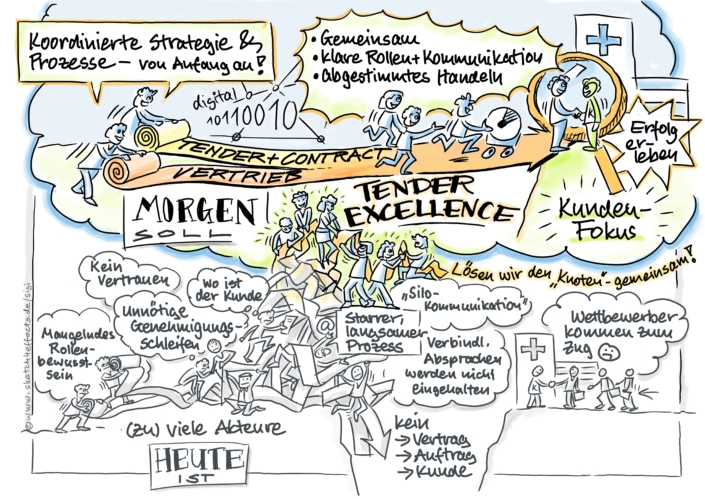 Koordinierte Strategie &
Prozesse – von Anfang an!
• Gemeinsam
• Klare Rollen + Kommunikation
• abgestimmtes Handeln
digital
10110010
TENDER + CONTRACT
VERTRIEB
MORGEN
SOLL
TENDER
EXCELLENCE
Erfolg
er-
leben
Kunden-
Fokus
Lösen wir den „Knoten" - gemeinsam!
Kein
Vertrauen
Wo ist
der Kunde
Unnötige
Genehmigungs-
schleifen
Mangelndes
Rollen-
bewusst-
sein
@
Starrer,
langsamer
Prozess
„Silo-
Kommunikation"
Verbindl.
Absprachen
werden nicht
eingehalten
Wettbewerber
kommen zum
Zug
(zu) viele Akteure
kein
→ Vertrag
→ Auftrag
→ Kunde
HEUTE
IST
©www.sketchtheffects.de/sigi